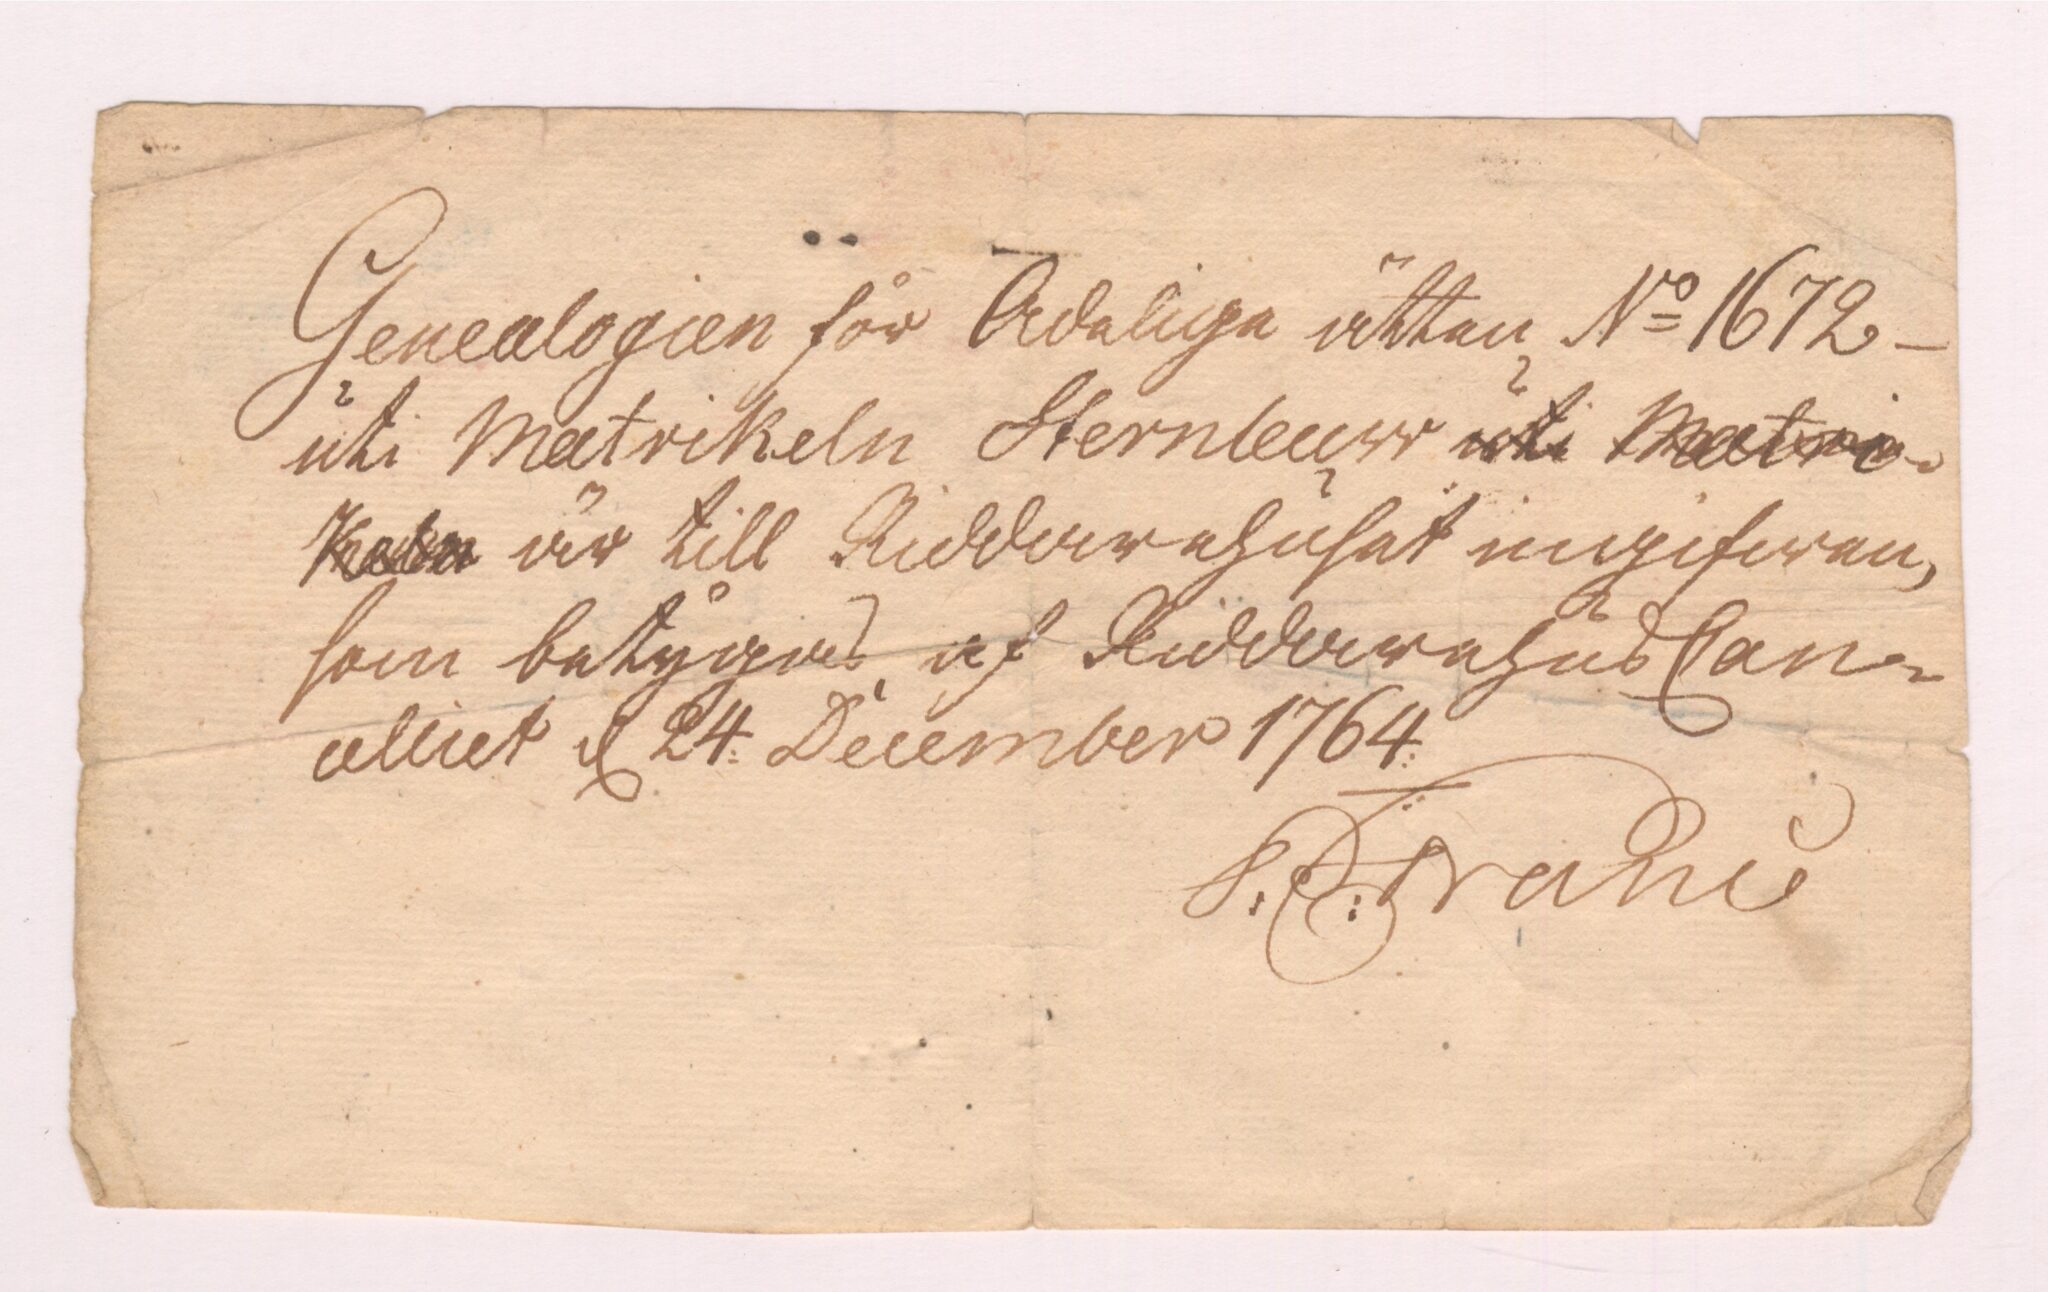 Genealogien för Adeliga ätten N:o 1672 –
uti Matrikeln Sternleuw uti Matri-
keln är till Riddarehuset ingifwen,
som betygas af Riddarehus Can-
celliet d 24: December 1764: